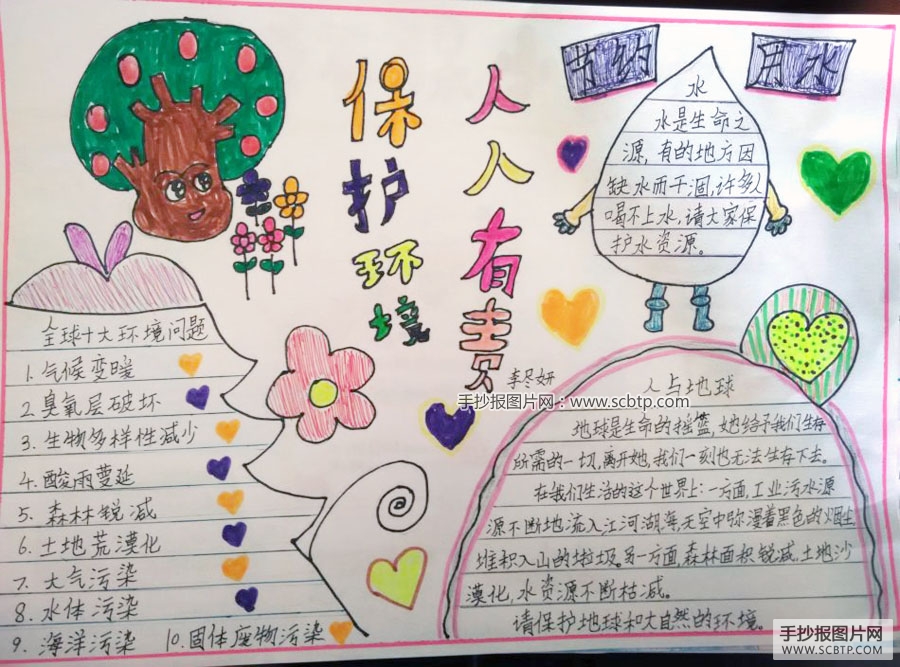 保护环境
人人有责
节约
用水
水
水是生命之
源,有的地方因
缺水而干涸,许多人
喝不上水,请大家保
护水资源。
全球十大环境问题
1.气候变暖
2.臭氧层破坏
3.生物多样性减少
4.酸雨蔓延
5.森林锐减
6.土地荒漠化
7.大气污染
8.水体污染
9.海洋污染 10.固体废物污染
手抄报图片网:www.scbtp.com
人与地球
地球是生命的摇篮,她给予我们生存
所需的一切,离开她,我们一刻也无法生存下去。
在我们生活的这个世界上:一方面,工业污水源
源不断地流入江河湖海,天空中弥漫着黑色的烟尘
堆积入山的垃圾。另一方面,森林面积锐减.土地沙
漠化,水资源不断枯减。
请保护地球和大自然的环境。
手抄报图片网
WWW.SCBTP.COM